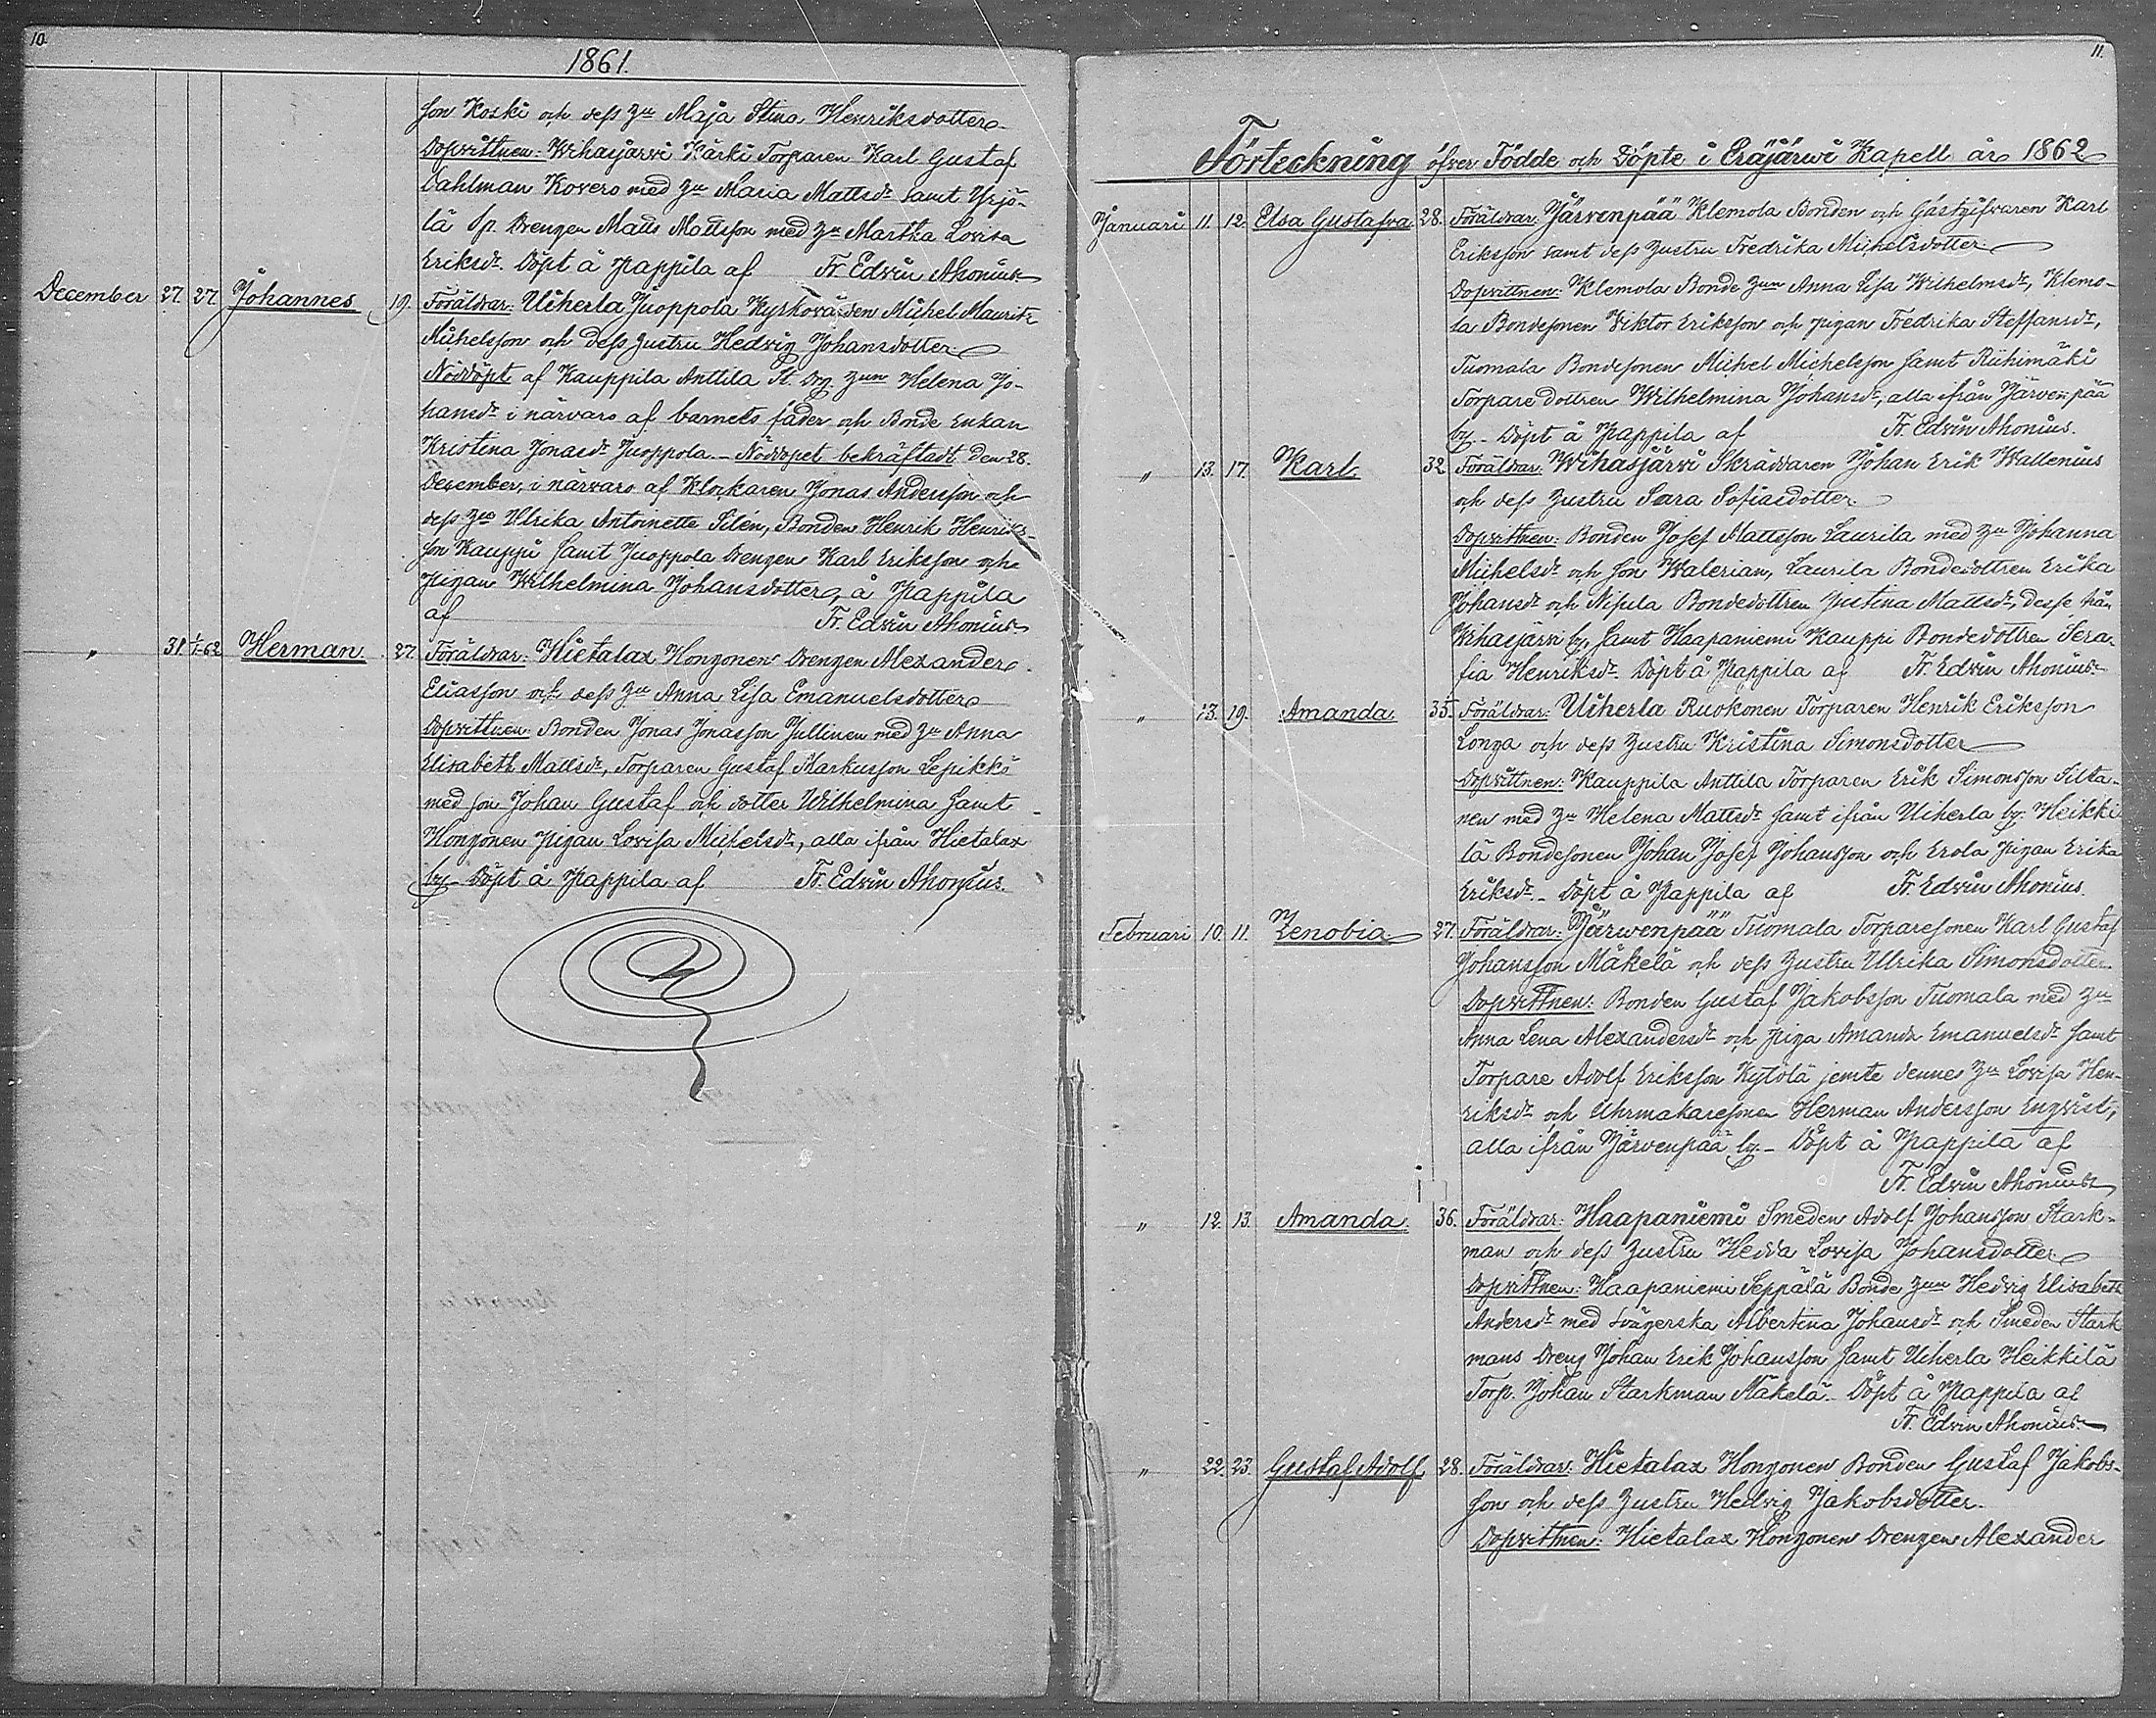 10.
1861.
son Koski och dess hu Maja Stina Henriksdotter
Dopvittnen: Wihasjärvi Kärki Torparen Karl Gustaf
Dahlman Kovero med hu Maria Mattsdr samt Yrjö-
lä Sp. Drengen Matts Mattsson med hu Martha Lovisa
Eriksdr. Döpt å Pappila af Fr. Edvin Ahonius
December 27. 27. Johannes. 19. Föräldrar: Uiherla Juoppola Kyrkovärden Michel Mauritz
Michelsson och dess hustru Hedvig Johansdotter
Nöddöpt af Kauppila Anttila St. Drg. hun Helena Jo-
hansdr i närvaro af barnets fader och Bonde Enkan
Kristina Jonasdr Juoppola. - Nöddopet bekräftadt den 28.
December, i närvaro af Klockaren Jonas Andersson och
dess hu Ulrika Antoinette Silén, Bonden Henrik Henriks-
son Kauppi samt Juoppola Drengen Karl Eriksson och
Pigan Wilhelmina Johansdotter, å Pappila
af Fr. Edvin Ahonius
" 31. 1/1-62 Herman. 27. Föräldrar: Hietalax Hongonen Drengen Alexander
Eliasson och dess hu Anna Lisa Emanuelsdotter
Dopvittnen: Bonden Jonas Jonasson Jullinen med hu Anna
Elisabeth Mattsdr, Torparen Gustaf Markusson Lepikkö
med son Johan Gustaf och dotter Wilhelmina samt
Hongonen Pigan Lovisa Michelsdr, alla ifrån Hietalax
by. Döpt å Pappila af Fr. Edvin Ahonius.
11.
Förteckning öfver Födde och Döpte i Eräjärwi Kapell år 1862
Januari 11. 12. Elsa Gustafva. 28. Föräldrar: Järvenpää Klemola Bonden och Gästgifvaren Karl
Eriksson samt dess hustru Fredrika Michelsdotter
Dopvittnen: Klemola Bonde hun Anna Lisa Wilhelmsdr, Klemo-
la Bondesonen Viktor Eriksson och pigan Fredrika Steffansdr,
Tuomala Bondesonen Michel Michelsson samt Riihimäki
Torpare dottren Wilhelmina Johansdr, alla ifrån Järvenpää
by. Döpt å Pappila af Fr. Edvin Ahonius.
" 13. 17. Karl. 32. Föräldrar: Wihasjärvi Skräddaren Johan Erik Wallenius
och dess hustru Sara Sofiasdotter
Dopvittnen: Bonden Josef Mattsson Laurila med hu Johanna
Michelsdr och son Walerian, Laurila Bondedottren Erika
Johansdr och Nisula Bondedottren Justina Mattsdr, desse från
Wihasjärvi by, samt Haapaniemi Kauppi Bondedottren Sera-
fia Henriksdr. Döpt å Pappila af Fr. Edvin Ahonius
" 13. 19. Amanda. 35. Föräldrar: Uiherla Ruokonen Torparen Henrik Eriksson
Longa och dess hustru Kristina Simonsdotter
Dopvittnen: Kauppila Anttila Torparen Erik Simonsson Silta-
nen med hu Helena Mattsdr samt ifrån Uiherla by: Heikki-
lä Bondesonen Johan Josef Johansson och Erola pigan Erika
Eriksdr. - Döpt å Pappila af Fr. Edvin Ahonius.
Februari 10. 11. Zenobia. 27. Föräldrar: Järwenpää Tuomala Torparesonen Karl Gustaf
Johansson Mäkelä och dess hustru Ulrika Simonsdotter
Dopvittnen: Bonden Gustaf Jakobsson Tuomala med hu
Anna Lena Alexandersdr och piga Amanda Emanuelsdr samt
Torpare Adolf Eriksson Kytölä jemte dennes hu Lovisa Hen-
riksdr och Uhrmakaresonen Herman Andersson Engvist,
alla ifrån Järvenpää by. - Döpt å Pappila af
Fr. Edvin Ahonius
" 12. 13. Amanda. 36. Föräldrar: Haapaniemi Smeden Adolf Johansson Stark-
man och dess hustru Hedda Lovisa Johansdotter
Dopvittnen: Haapaniemi Seppälä Bonde hun Hedvig Elisabeth
Andersdr med svägerska Albertina Johansdr och Smeden Stark
mans Dreng Johan Erik Johansson samt Uiherla Heikkilä
Torp. Johan Starkman Mäkelä. Döpt å Pappila af
Fr. Edvin Ahonius
" 22. 23. Gustaf Adolf. 28. Föräldrar: Hietalax Hongonen Bonden Gustaf Jakobs-
son och dess hustru Hedvig Jakobsdotter.
Dopvittnen: Hietalax Hongonen Drengen Alexander